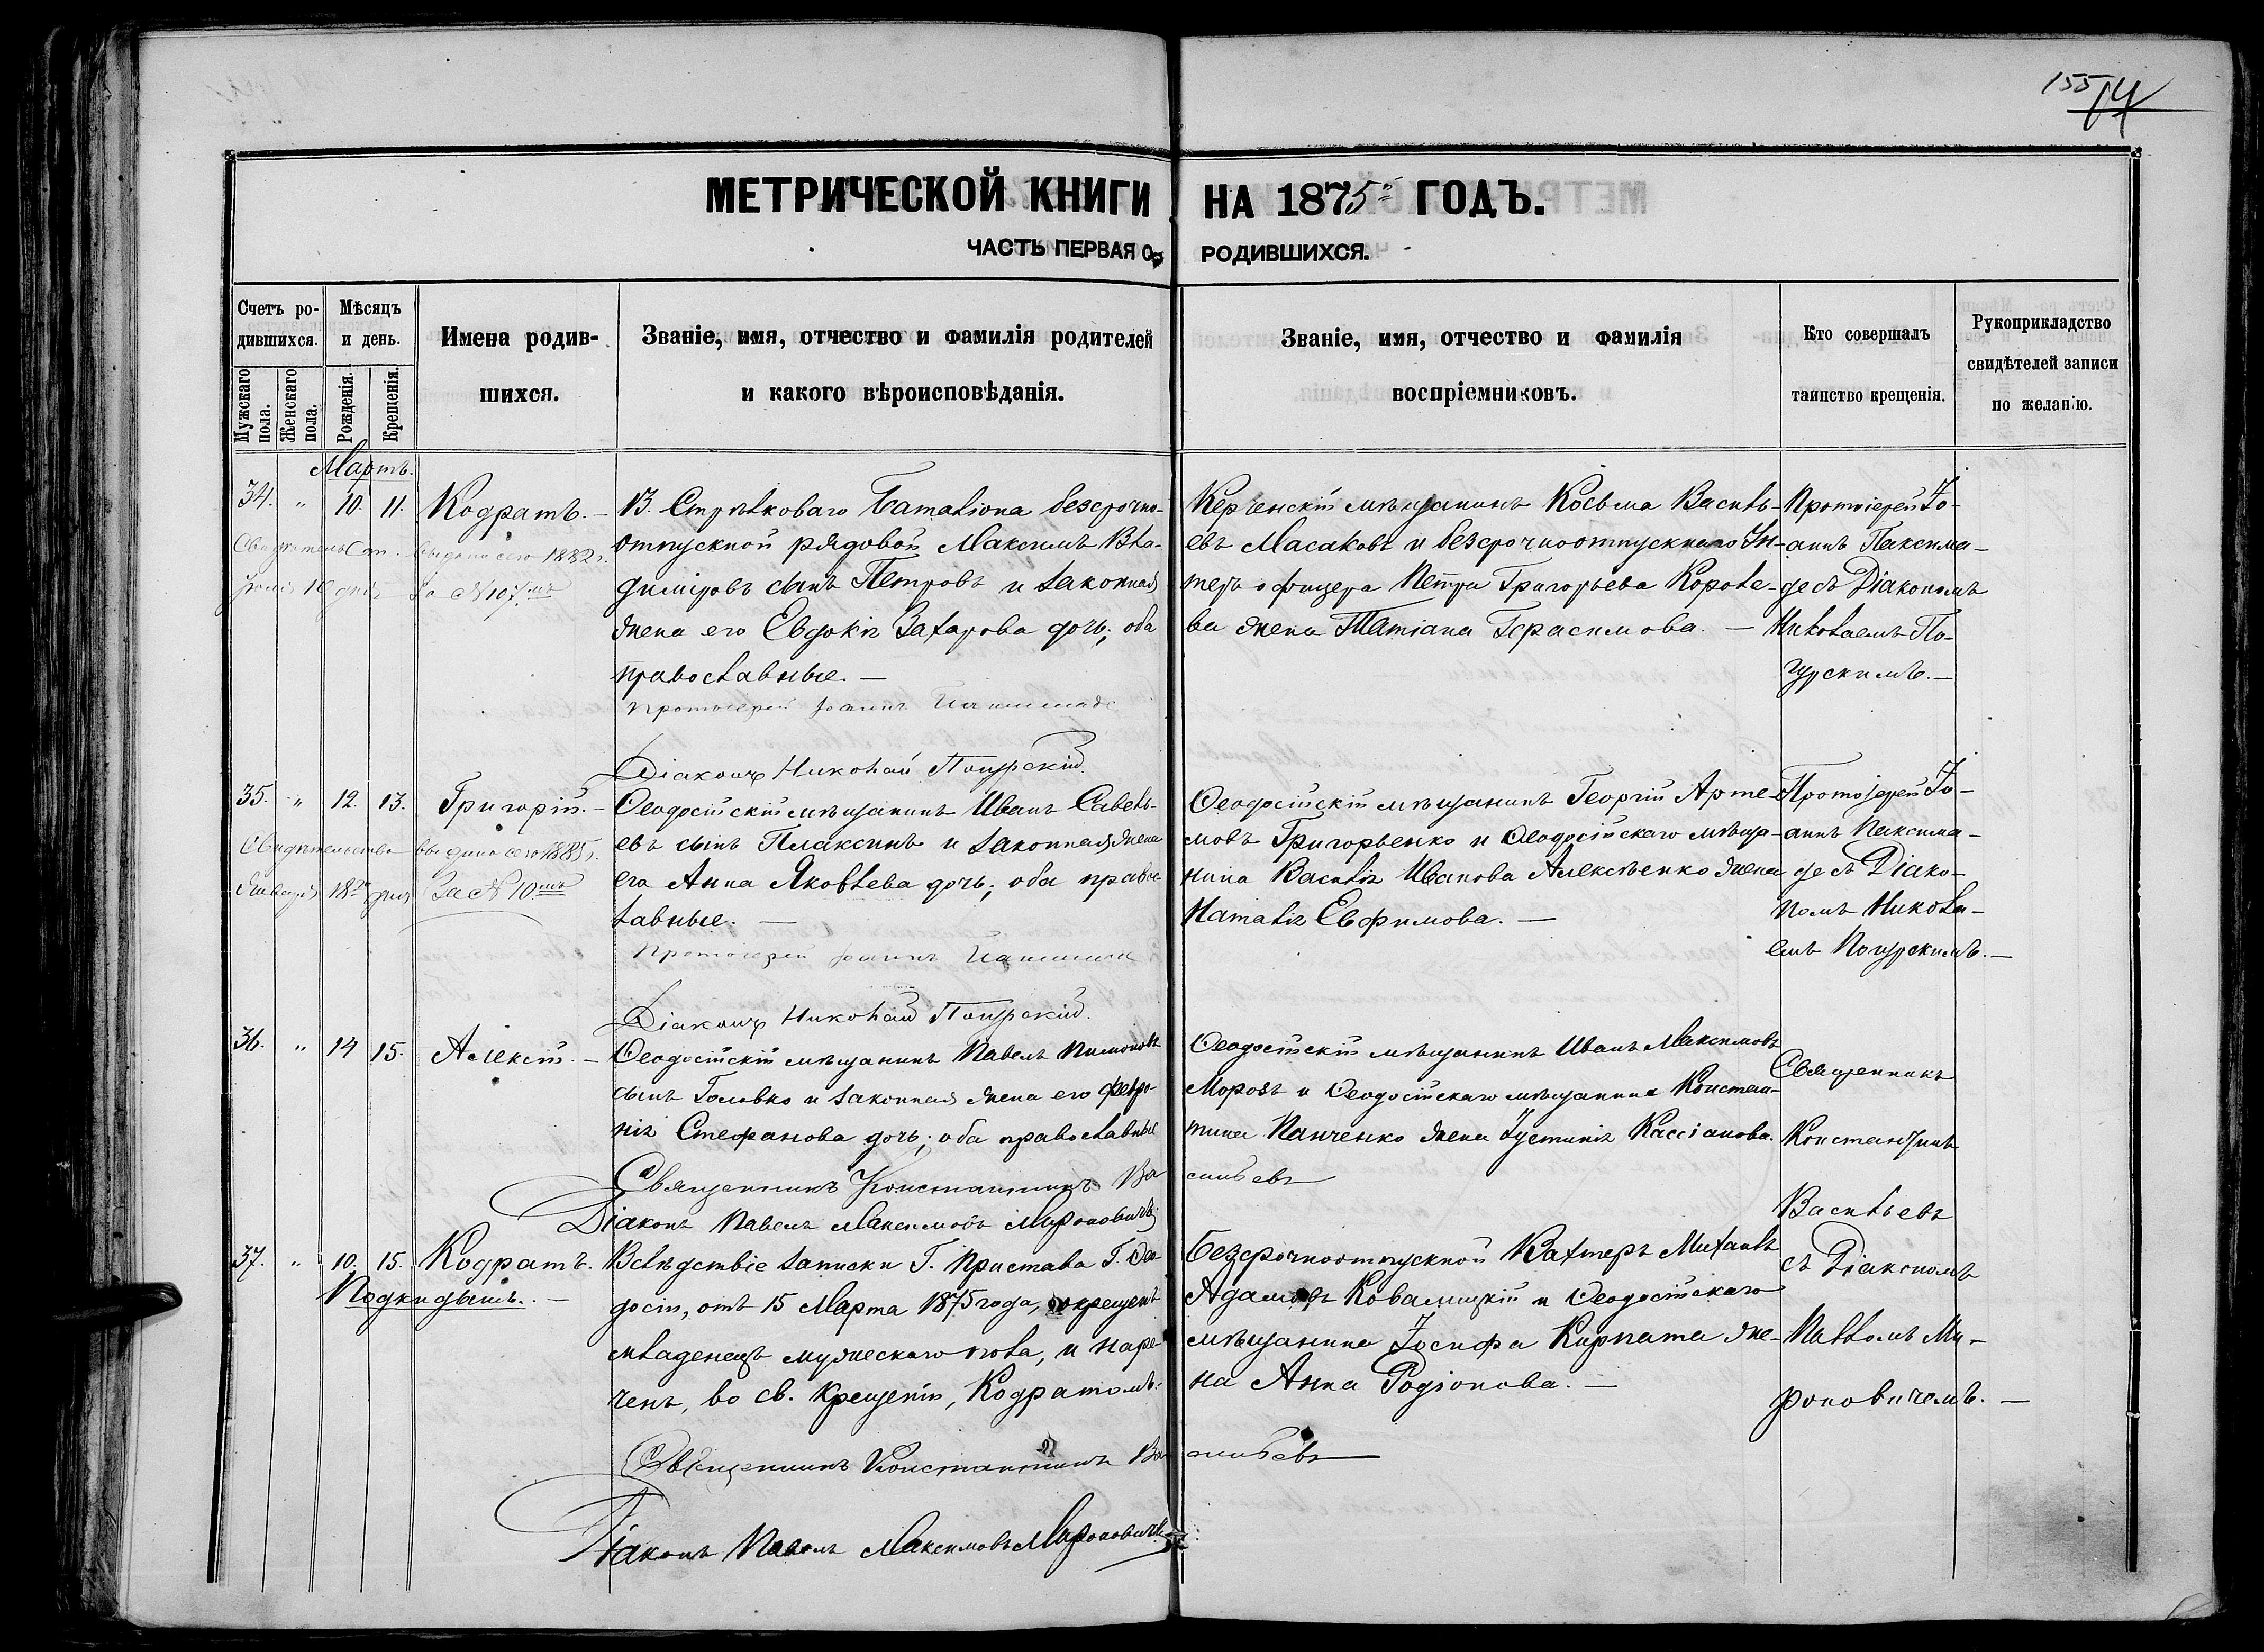 155
14
МЕТРИЧЕСКОЙ КНИГИ НА 1875й ГОДЪ.
ЧАСТЬ ПЕРВАЯ О РОДИВШИХСЯ.
Счетъ ро-
дившихся.
Мужскаго пола.
Женскаго пола.
Мѣсяцъ
и день.
Рожденія.
Крещенія.
Имена родив-
шихся.
Званіе, имя, отчество и фамилія родителей
и какого вѣроисповѣданія.
Званіе, имя, отчество и фамилія
воспріемниковъ.
Кто совершалъ
таинство крещенія.
Рукоприкладство
свидѣтелей записи
по желанію.
Мартъ.
34. " 10. 11. Кодратъ. –
выдано сего 1882 г.
За № 107мъ
13. Стрѣлковаго Баталіона безсрочно-
отпускной рядовой Максимъ Вла-
диміровъ сынъ Петровъ и законная
жена его Евдокія Захарова дочь; оба
православные. –
Протоіерей Іоаннъ
Діаконъ Николай Погурскій.
Керченскій мѣщанинъ Косьма Василь-
евъ Масаковъ и безсрочноотпускнаго Ун-
теръ офицера Петра Григорьева Короле-
ва жена Татіана Герасимова. –
Протоіерей Іо-
аннъ Паксима-
де съ Діакономъ
Николаемъ По-
гурскимъ. –
35. " 12. 13. Григорій. –
Свидѣтельство выдано сего 1885 г.
Января 18го дня За № 10мъ
Ѳеодосійскій мѣщанинъ Иванъ Савель-
евъ сынъ Плаксинъ и законная жена
его Анна Яковлева дочь; оба право
лавные. –
Протоіерей Іоаннъ
Діаконъ Николай Погурскій.
Ѳеодосійскій мѣщанинъ Георгій Арте-
мовъ Григорьенко и Ѳеодосійскаго мѣща-
нина Василія Иванова Алексѣенко жена
Наталія Евфимова. –
Протоіерей Іо-
аннъ Паксима-
де съ Діако-
номъ Никола-
емъ Погурскимъ. –
36. " 14 15. Алексій. –
Ѳеодосійскій мѣщанинъ Павелъ Пимоновъ
сынъ Головко и законная жена его Февро-
нія Стефанова дочь; оба православные
Священникъ Константинъ Ва
сильевъ
Діаконъ Павелъ Максимовъ Мироновичъ
Ѳеодосійскій мѣщанинъ Иванъ Максимовъ
Морозъ и Ѳеодосійскаго мѣщанина Констан-
тина Панченко жена Іустинія Кассіанова.
Священникъ
Константинъ
Васильевъ
съ Діакономъ
Павломъ Ми-
роновичемъ. –
37. " 10. 15. Кодратъ.
Подкидышъ. –
Вслѣдствіе записки Г. Пристава Г. Ѳео
досіи, отъ 15 Марта 1875 года, окрещенъ
младенецъ мужескаго пола, и наре-
ченъ, во св. крещеніи, Кодратомъ.
Священникъ Константинъ Ва
сильевъ
Діаконъ Павелъ Максимовъ Мироновичъ
Безсрочноотпускной Вахтеръ Михаилъ
Адамовъ Ковалицкій и Ѳеодосійскаго
мѣщанина Іосифа Кирпата же-
на Анна Родіонова. –